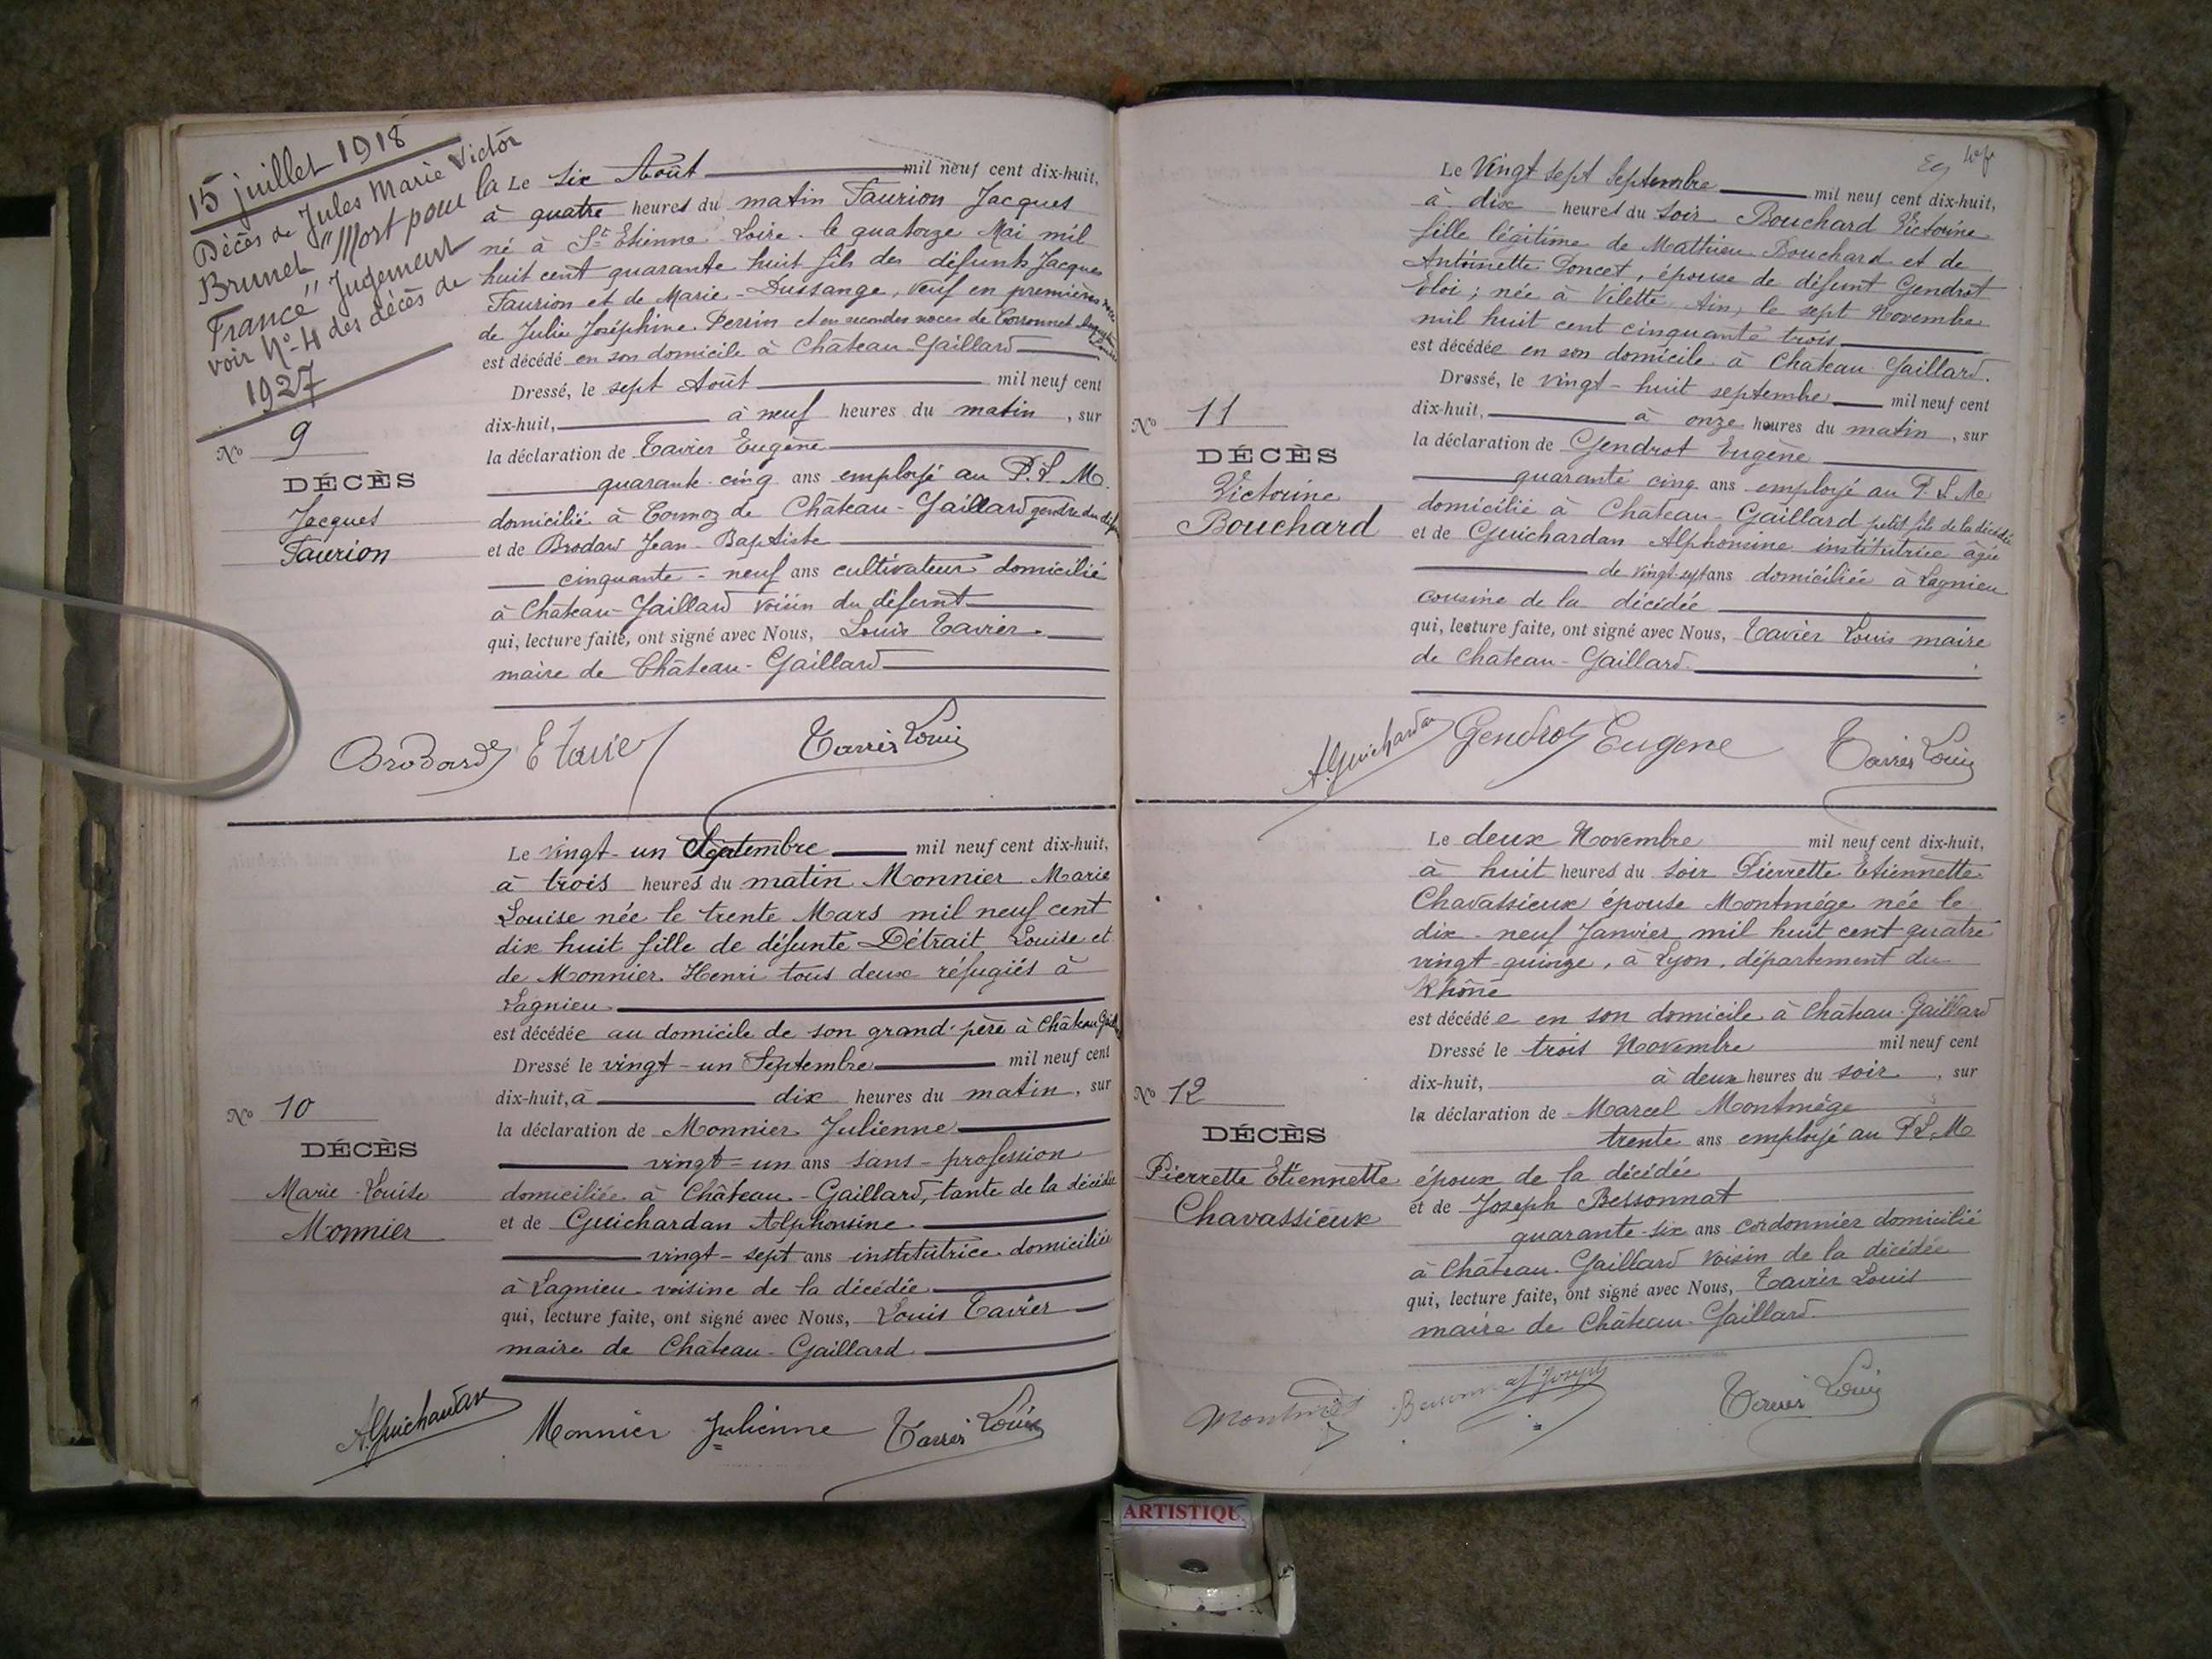 15 juillet 1918
Décès de Jules Marie Victor
Brunet "Mort pour la
France" Jugement
voir N°-4 des décès de
1927
N° 9
DÉCÈS
Jacques
Faurion
Le six Août mil neuf cent dix-huit,
à quatre heures du matin Faurion Jacques
né à St Etienne Loire le quatorze Mai mil
huit cent quarante huit fils des défunts Jacques
Faurion et de Marie Dussange, veuf en premières noces
de Julie Joséphine Perrin et en secondes noces de
est décédé en son domicile à Château-Gaillard
Dressé, le sept Août mil neuf cent
dix-huit, à neuf heures du matin, sur
la déclaration de Tavier Eugène
quarante cinq ans employé au P. L. M.
domicilié à Cormoz de Château-Gaillard gendre du
et de Brodard Jean-Baptiste
cinquante-neuf ans cultivateur domicilié
à Château-Gaillard voisin du défunt
qui, lecture faite, ont signé avec Nous, Louis Tavier
maire de Château-Gaillard
Brodard E Tavier Tavier Louis
N° 10
DÉCÈS
Marie-Louise
Monnier
Le vingt-un Septembre mil neuf cent dix-huit,
à trois heures du matin Monnier Marie
Louise née le trente Mars mil neuf cent
dix huit fille de défunte Détrait Louise et
de Monnier Henri tous deux réfugiés à
Lagnieu
est décédée au domicile de son grand'père à Château
Dressé le vingt-un Septembre mil neuf cent
dix-huit, à dix heures du matin, sur
la déclaration de Monnier Julienne
vingt-un ans sans-profession
domiciliée à Château-Gaillard, tante de la décédée
et de Guichardan Alphonsine
vingt-sept ans institutrice domiciliée
à Lagnieu voisine de la décédée
qui, lecture faite, ont signé avec Nous, Louis Tavier
maire de Château-Gaillard
A. Guichardan Monnier Julienne Tavier Louis
N° 11
DÉCÈS
Victorine
Bouchard
Le Vingt sept Septembre mil neuf cent dix-huit,
à dix heures du soir Bouchard Victorine
fille légitime de Mathieu Bouchard et de
Antoinette Poncet, épouse de défunt Gendrot
Eloi ; née à Vilette Ain, le sept Novembre
mil huit cent cinquante trois
est décédée en son domicile à Château Gaillard.
Dressé, le vingt-huit septembre mil neuf cent
dix-huit, à onze heures du matin, sur
la déclaration de Gendrot Eugène
quarante cinq ans employé au P. L. M.
domicilié à Château-Gaillard petit fils de la décédée
et de Guichardan Alphonsine institutrice âgée
de vingt-sept ans domiciliée à Lagnieu
cousine de la décédée
qui, lecture faite, ont signé avec Nous, Tavier Louis maire
de Château-Gaillard.
A. Guichardan Gendrot Eugene Tavier Louis
N° 12
DÉCÈS
Pierrette Etiennette
Chavassieux
Le deux Novembre mil neuf cent dix-huit,
à huit heures du soir Pierrette Etiennette
Chavassieux épouse Montmége née le
dix-neuf Janvier mil huit cent quatre
vingt-quinze, à Lyon, département du
Rhône
est décédée en son domicile à Château-Gaillard
Dressé le trois Novembre mil neuf cent
dix-huit, à deux heures du soir, sur
la déclaration de Marcel Montmége
trente ans employé au P. L. M
époux de la décédée
et de Joseph Bessonnat
quarante-six ans cordonnier domicilié
à Château-Gaillard voisin de la décédée
qui, lecture faite, ont signé avec Nous, Tavier Louis
maire de Château-Gaillard.
Bessonnat Joseph Tavier Louis
ARTISTIQU